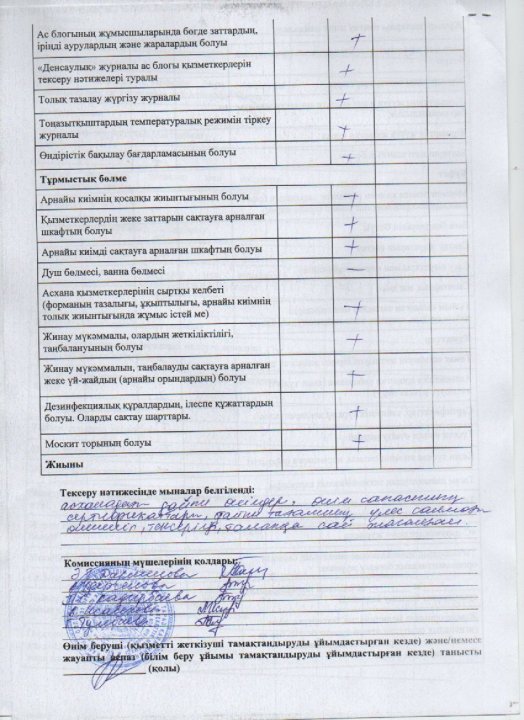 Ас блогының жұмысшыларында бөгде заттардың,
іріңді аурулардың және жаралардың болуы +
«Денсаулық» журналы ас блогы қызметкерлерін
тексеру нәтижелері туралы +
Толық тазалау жүргізу журналы +
Тоңазытқыштардың температуралық режимін тіркеу
журналы +
Өндірістік бақылау бағдарламасының болуы +
Тұрмыстық бөлме
Арнайы киімнің қосалқы жиынтығының болуы +
Қызметкерлердің жеке заттарын сақтауға арналған
шкафтың болуы +
Арнайы киімді сақтауға арналған шкафтың болуы +
Душ бөлмесі, ванна бөлмесі —
Асхана қызметкерлерінің сыртқы келбеті
(форманың тазалығы, ұқыптылығы, арнайы киімнің
толық жиынтығында жұмыс істей ме) +
Жинау мүкәммалы, олардың жеткіліктілігі,
таңбалануының болуы +
Жинау мүкәммалын, таңбалауды сақтауға арналған
жеке үй-жайдың (арнайы орындардың) болуы +
Дезинфекциялық құралдардың, ілеспе құжаттардың
болуы. Оларды сақтау шарттары. +
Москит торының болуы +
Жиыны
Тексеру нәтижесінде мыналар белгіленді:
дайын өнімдер, өнім сапасының
сертификаттары, дайын тағамның үлес салмағы
тексеріліп, талапқа сай
Комиссияның мүшелерінің қолдары:
Өнім беруші (қызметті жеткізуші тамақтандыруды ұйымдастырған кезде) және/немесе
жауапты аспаз (білім беру ұйымы тамақтандыруды ұйымдастырған кезде) танысты
(қолы)